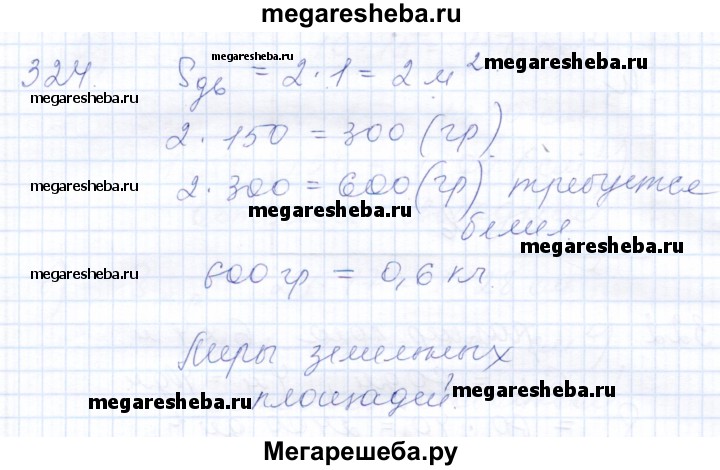 megaresheba.ru
324. Sдв = 2 · 1 = 2 м²
megaresheba.ru
megaresheba.ru
megaresheba.ru
2 · 150 = 300 (гр)
megaresheba.ru
2 · 300 = 600 (гр) требуется
megaresheba.ru
белил.
megaresheba.ru
megaresheba.ru
600 гр = 0,6 кг.
Меры земельных
megaresheba.ru
площадей.
megaresheba.ru
Мегарешеба.ру